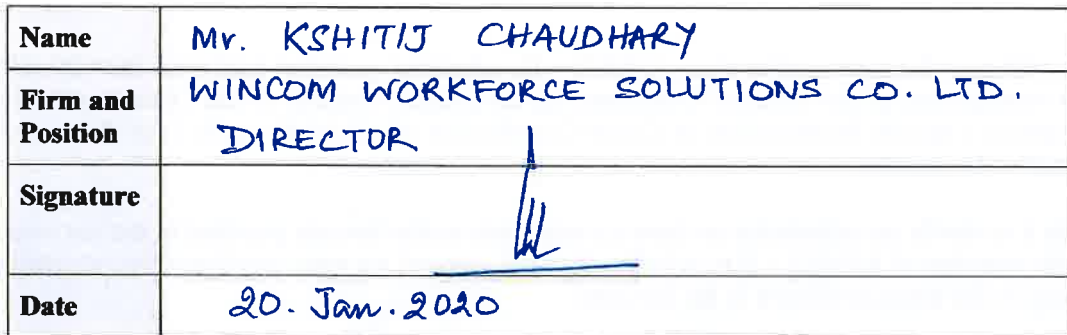 Name Mr. KSHITIJ CHAUDHARY
Firm and WINCOM WORKFORCE SOLUTIONS CO. LTD.
Position DIRECTOR
Signature
Date 20. Jan. 2020